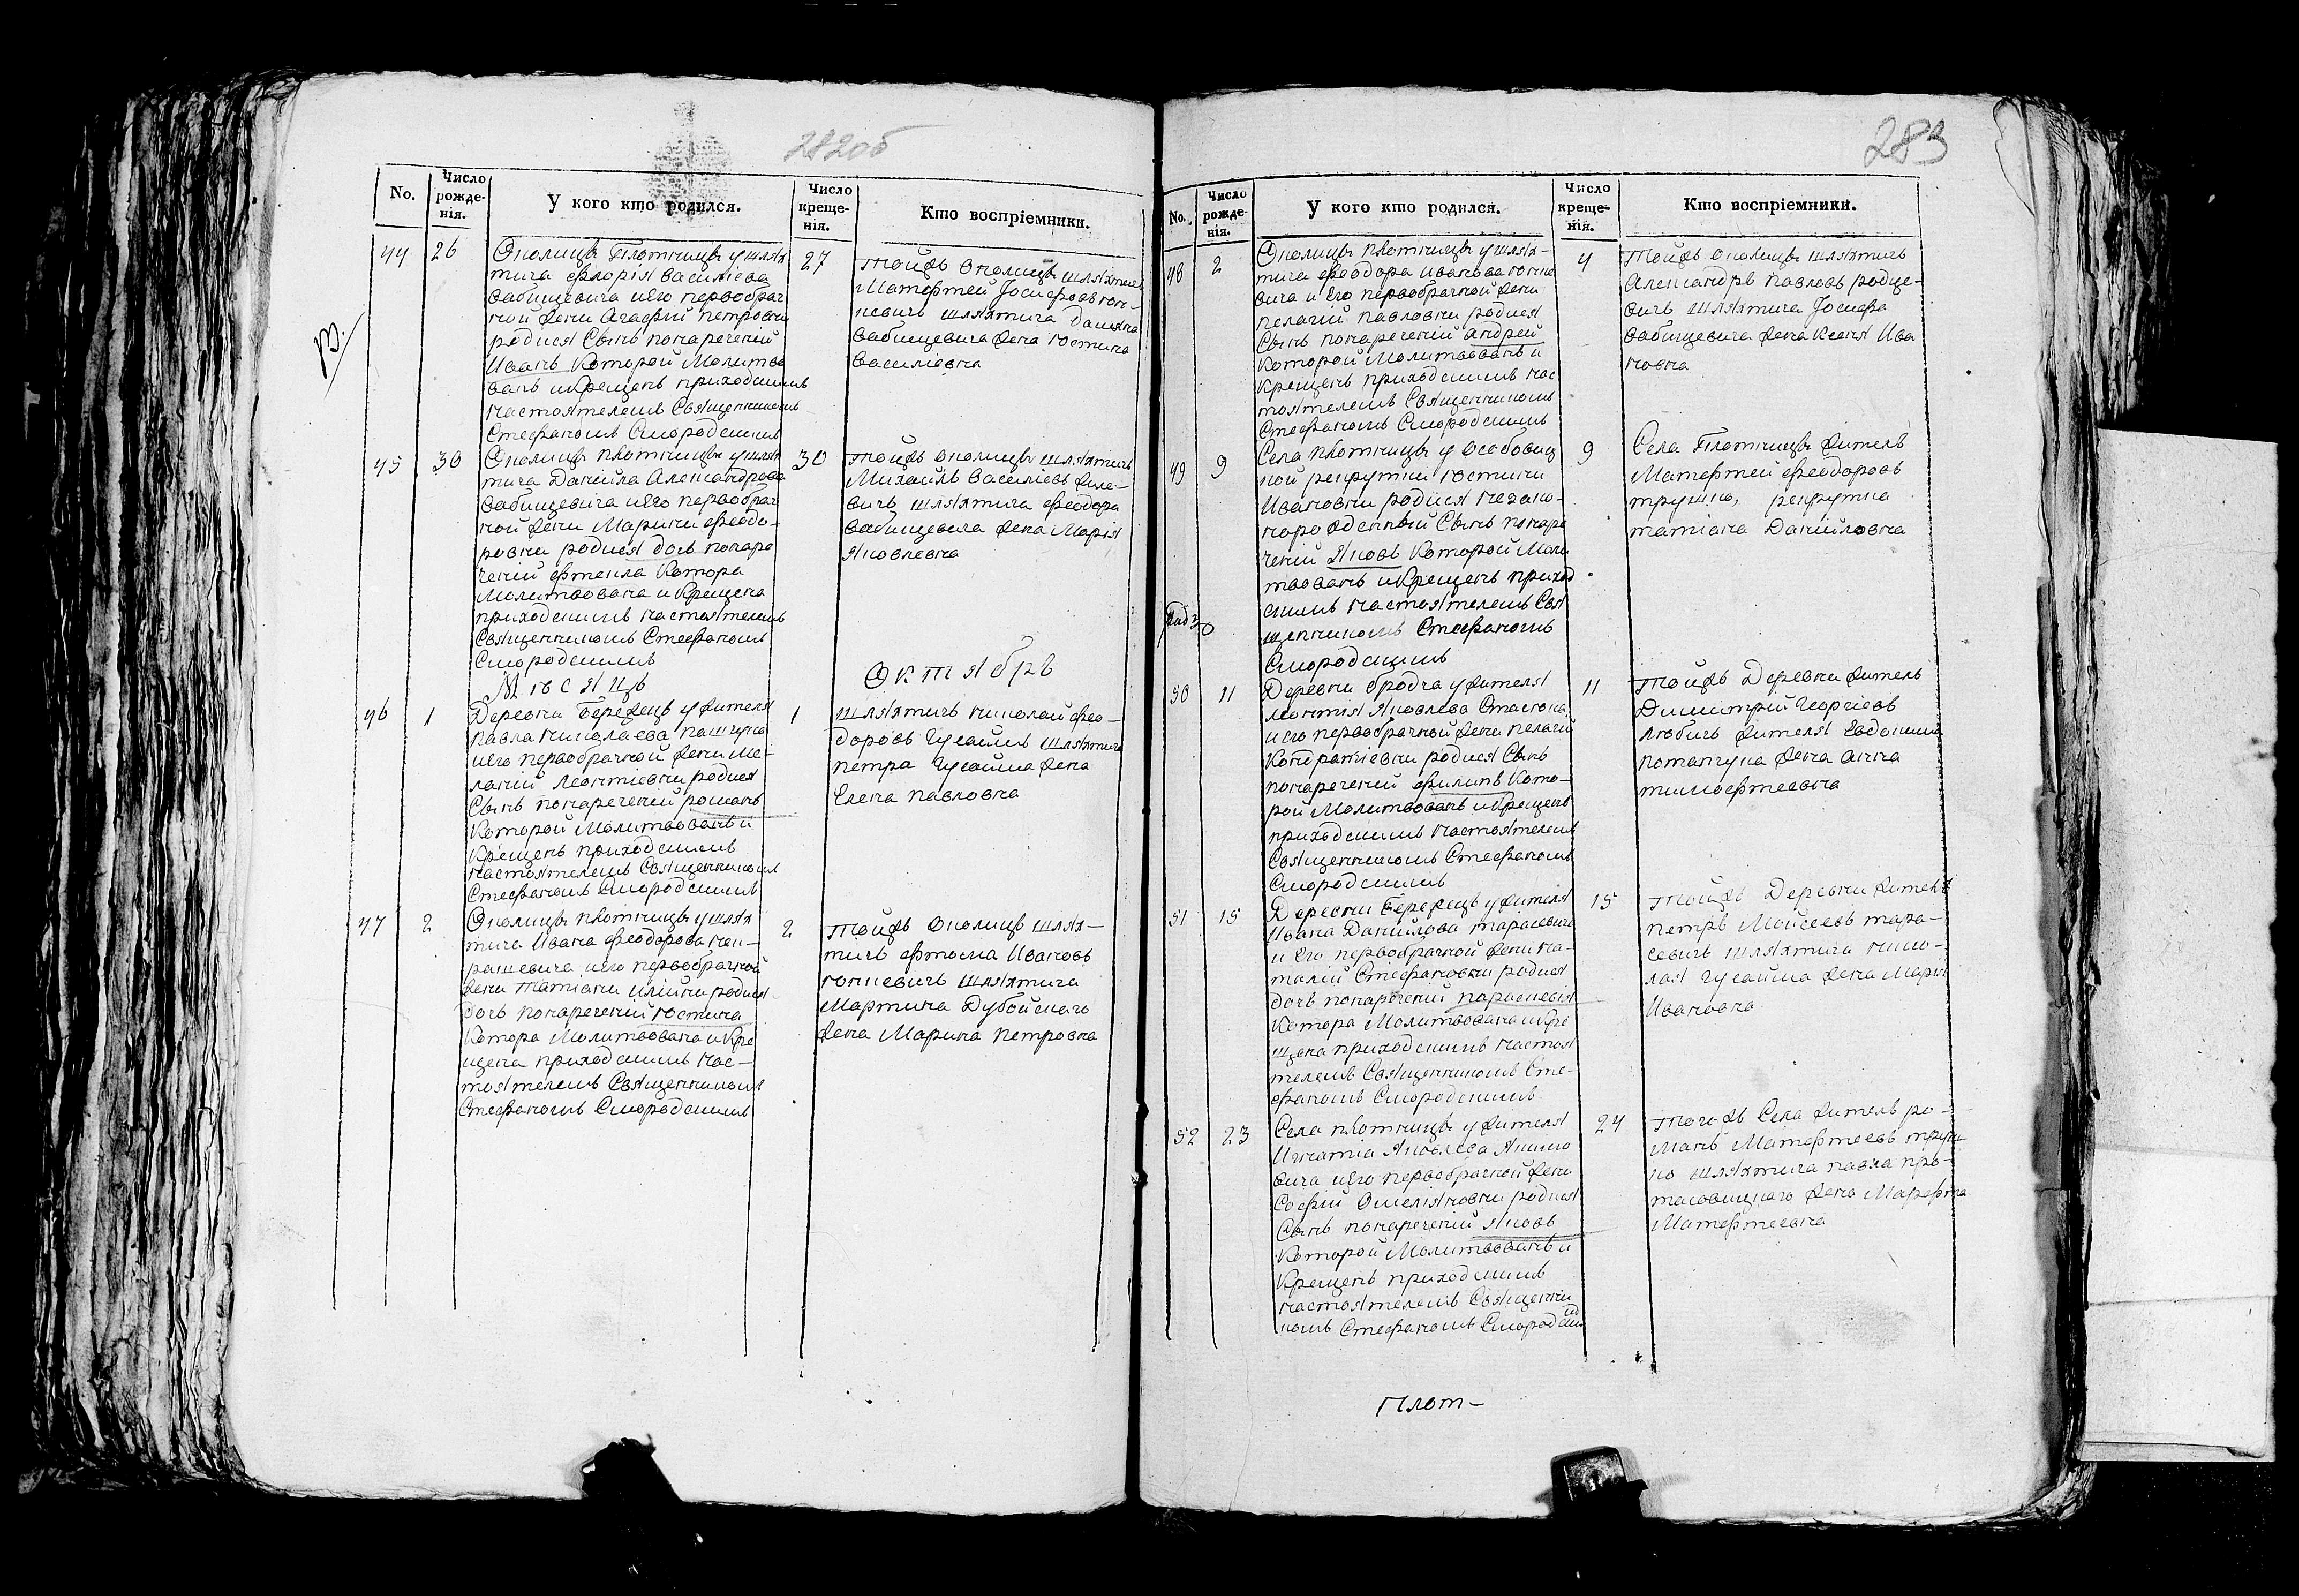 282об
No.
Число рожде-нія.
У кого кто родился.
Число креще-нія.
Кто воспріемники.
44 26
Околицы Плотницы у шлях
тича Флорія Василіева
Бабицевича и его первобрач
ной жены Агафіи Петровны
родися Сынъ понареченій
Иванъ Которой Молитво
ванъ и Крещенъ приходскимъ
настоятелемъ Священникомъ
Стефаномъ Смородскимъ
27
тойжъ Околицы шляхтичъ
Матфтей Іосифовъ
шляхтича
Бабицевича жена Юстина
Василіевна
45 30
Околицы Плотницы у шлях
тича Даніила Александрова
Бабицевича и его первобрач
ной жены Марины Феодо-
ровны родися дочъ понаре
ченій Фтекла Котора
Молитвована и Крещена
приходскимъ настоятелемъ
Священникомъ Стефаномъ
Смородскимъ
30
тойжъ околицы шляхтичъ
Михаилъ Василіевъ
шляхтича Феодора
Бабицевича жена Марія
Яковлевна
Мѣсяцъ
Октябрь
46 1
Деревни Бережецъ у жителя
Павла Николаева
и его первобрачной жены Ме-
ланіи Леонтіевны родися
Сынъ понареченій Романъ
Которой Молитвованъ и
Крещенъ приходскимъ
настоятелемъ Священникомъ
Стефаномъ Смородскимъ
1
шляхтичъ Николай Фео-
доровъ Гусаимъ шляхтича
Петра Гусайма жена
Елена Павловна
47 2
Околицы Плотницы у шлях
тича Ивана Феодорова
и его первобрачной
жены Татіаны Иліины родися
дочъ понареченій Юстина
Котора Молитвована и Кре
щена приходскимъ нас-
тоятелемъ Священникомъ
Стефаномъ Смородскимъ
2
тойжъ Околицы шлях-
тичъ Фтома Ивановъ
шляхтича
Мартина Дубойскаго
жена Марина Петровна
283
No.
Число рожде-нія.
У кого кто родился.
Число креще-нія.
Кто воспріемники.
48 2
Околицы Плотницы у шлях-
тича Феодора Иванова
вича и Его первобрачной жены
Пелагіи Павловны родися
Сынъ понареченій Андрей
Которой Молитвованъ и
Крещенъ приходскимъ нас
тоятелемъ Священникомъ
Стефаномъ Смородскимъ
4
тойжъ околицы шляхтичъ
Александръ Павловъ Родце-
вичъ шляхтича Іосифа
Бабицевича жена Ксенія Ива
новна
49 9
Села Плотницы у Особовиц
кой рекрутки Юстины
Ивановны родися незако-
норожденный Сынъ понаре
ченій Яковъ Которой Моли
твованъ и Крещенъ приход
скимъ настоятелемъ Свя
щенникомъ Стефаномъ
Смородскимъ
9
Села Плотницы житель
Матфтей Феодоровъ
Трушко, рекрутка
Татіана Даніиловна
50 11
Деревни Бродча у жителя
Леонтія Яковлева
и его первобрачной жены Пелагіи
Кондратіевны родися Сынъ
понареченій Филипъ Кото-
рой Молитвованъ и Крещенъ
приходскимъ настоятелемъ
Священникомъ Стефаномъ
Смородскимъ
11
тойжъ Деревни житель
Димитрій Георгіевъ
Любичъ жителя Евдокима
Потапчука жена Анна
Тимофтеевна
51 15
Деревни Бережецъ у жителя
Ивана Даніилова Тарасевича
и Его первобрачной жены На-
таліи Стефановны родися
дочъ понареченій Параскевія
Котора Молитвована и Кре
щена приходскимъ настоя
телемъ Священникомъ Сте-
фаномъ Смородскимъ
15
тойжъ Деревни житель
Петръ Моисеевъ Тара-
севичъ шляхтича Нико-
лая Гусайма жена Марія
Ивановна
52 23
Села Плотницы у жителя
Игнатіа Яковлева Якимо
вича и Его первобрачной жены
Софіи Омеліяновны родися
Сынъ понареченій Яковъ
Которой Молитвованъ и
Крещенъ приходскимъ
настоятелемъ Священни
комъ Стефаномъ Смородским
24
тогожъ Села житель Ро-
манъ Матфтеевъ Труш
ко шляхтича Павла Про-
тасовицкаго жена Марфта
Матфтеевна
Плот-